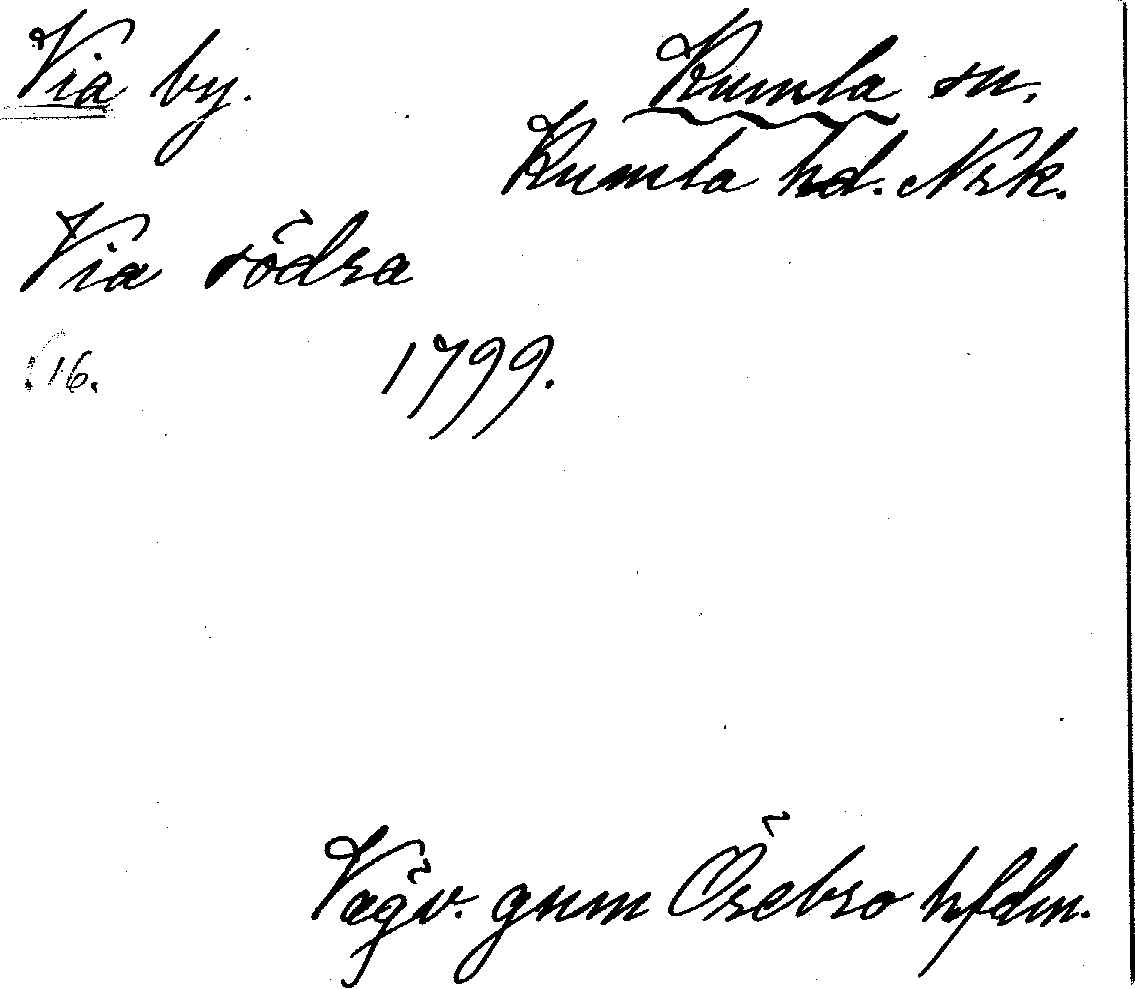 Via by. Kumla sn.
Kumla hd. Nrk.
Via södra
16. 1799.
Vägv. gnm Örebro hfdm.